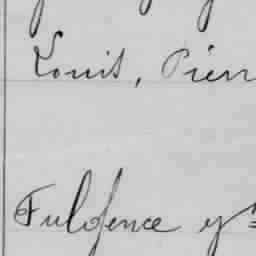 Louis, Pierr
Fulgence y